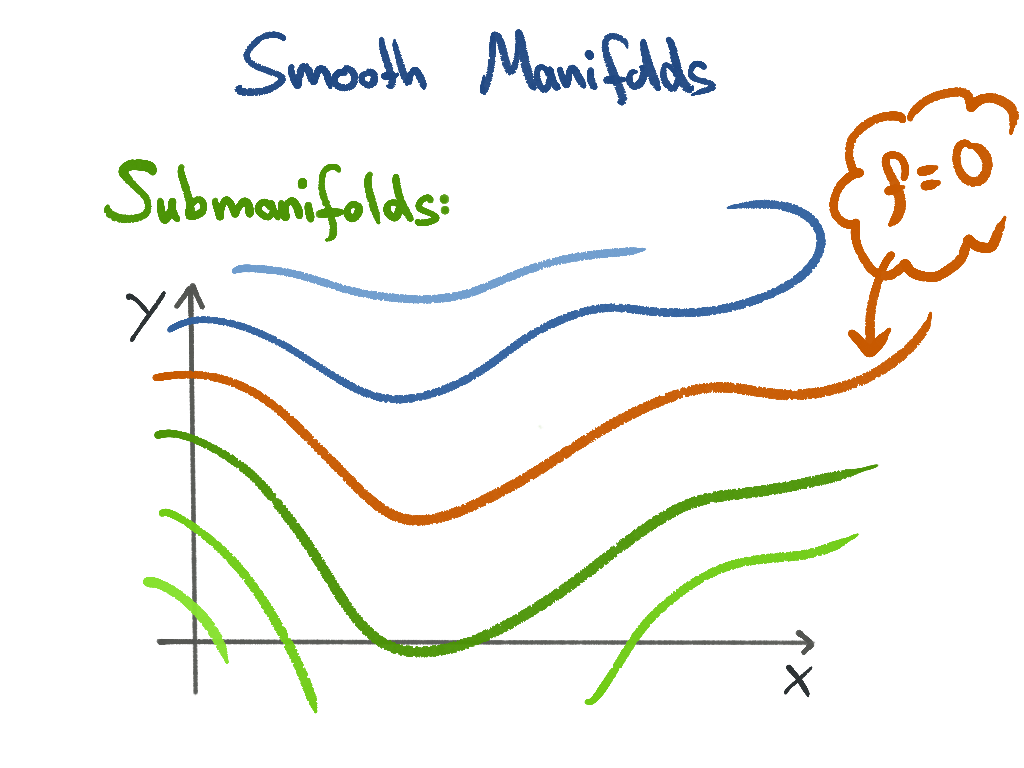 Smooth Manifolds
Submanifolds:
f = 0
y
x